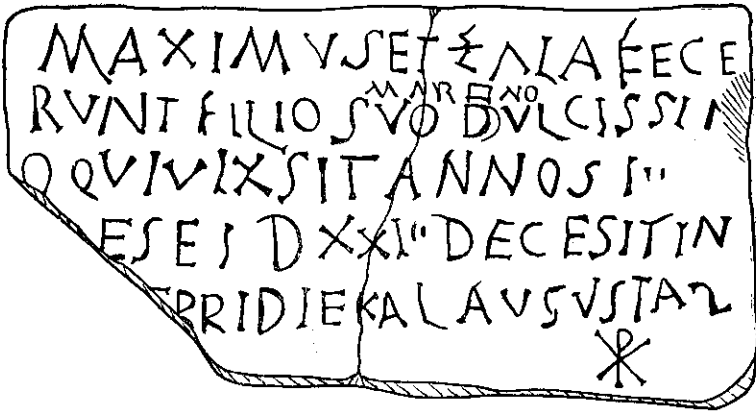 MAXIMVS ET EECE
RVNT FILIO SVO DVLCISSIM
O QVI VIXSIT ANNOS III
ESES I D XXIII DECESIT IN
E PRIDIE KAL AVGVSTAS
☧